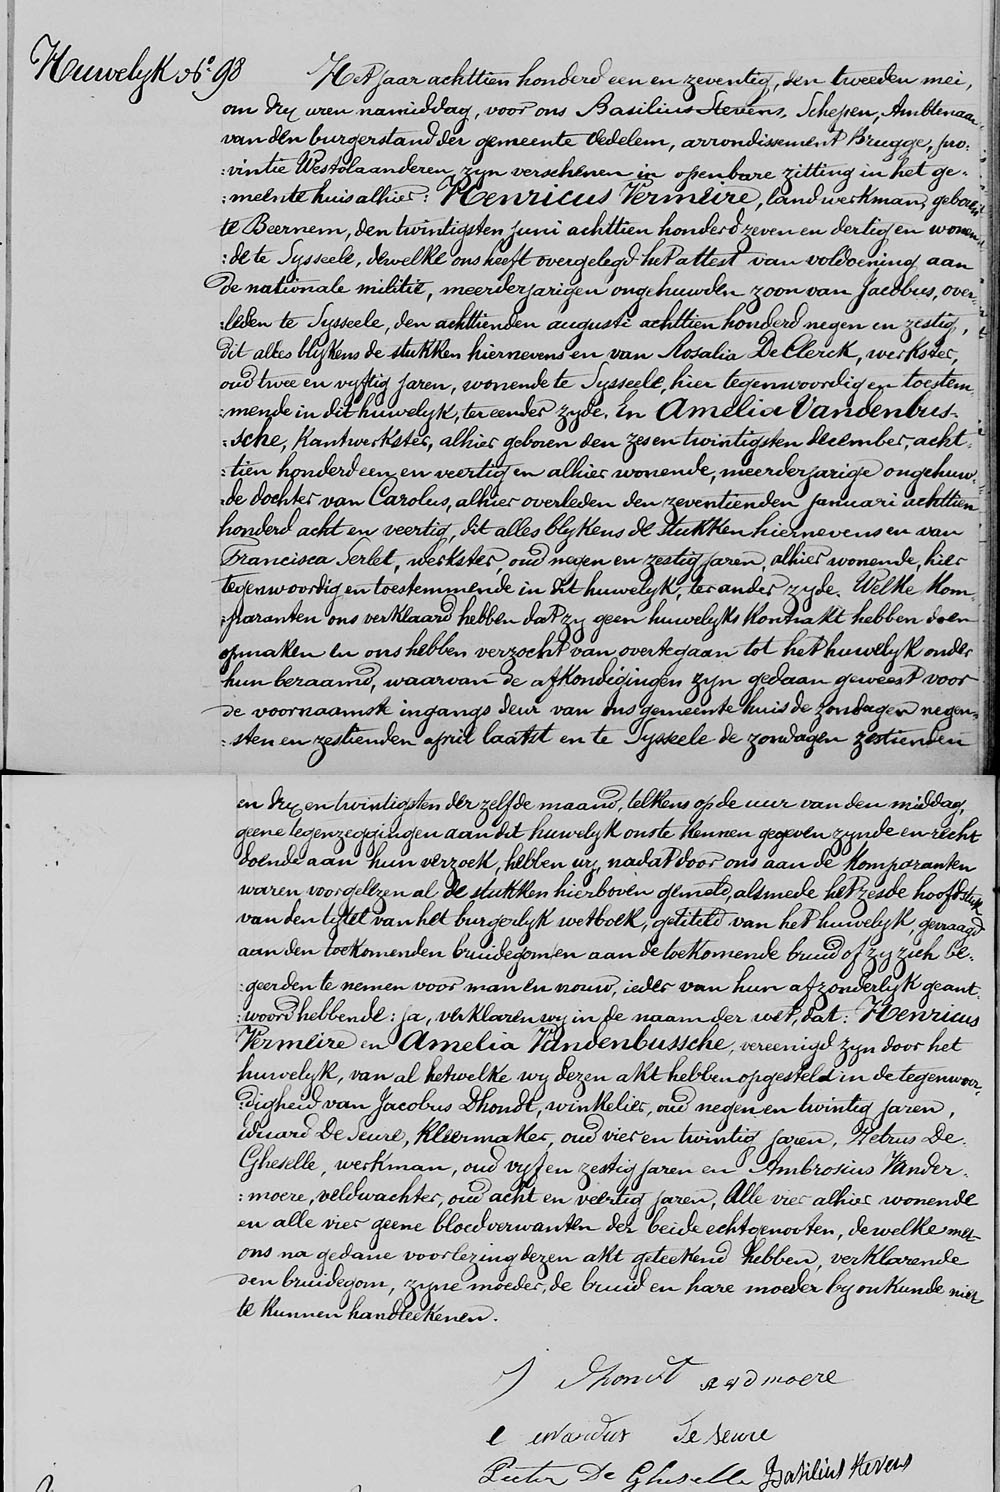 Huwelyk N.º 98
Het Jaar achttien honderd een en zeventig, den tweeden mei,
om dry uren namiddag, voor ons Basilius Stevens, Schepen, Ambtenaar
van den burgerstand der gemeente Oedelem, arrondissement Brugge, pro:
:vintie Westvlaanderen, zyn verschenen in openbare zitting in het ge:
:meente huis alhier: Henricus Vermeire, landwerkman, geboren
te Beernem, den twintigsten juni achttien honderd zeven en dertig en wonen
:de te Sysseele, dewelke ons heeft overgelegd het attest van voldoening aan
de nationale militie, meerderjarigen ongehuwden zoon van Jacobus, over:
:leden te Sysseele, den achttienden augusti achttien honderd negen en zestig,
dit alles blykens de stukken hiernevens en van Rosalia De Clerck, werkster,
oud twee en vyftig jaren, wonende te Sysseele, hier tegenwoordig en toestem:
:mende in dit huwelyk, ter eender zyde. En Amelia Vandenbus:
:sche, Kantwerkster, alhier geboren den zes en twintigsten december, acht:
:tien honderd een en veertig en alhier wonende, meerderjarige ongehuw:
:de dochter van Carolus, alhier overleden den zeventienden januari achttien
honderd acht en veertig, dit alles blykens de stukken hiernevens en van
Francisca Serlet, werkster, oud negen en zestig jaren, alhier wonende, hier
tegenwoordig en toestemmende in dit huwelyk, ter ander zyde. Welke Kom:
:paranten ons verklaard hebben dat zy geen huwelyks Kontrakt hebben doen
opmaken en ons hebben verzocht van overtegaan tot het huwelyk onder
hun beraamd, waarvan de afkondigingen zyn gedaan geweest voor
de voornaamste ingangs deur van ons gemeente huis de zondagen negen:
:sten en zestienden april laatst en te Sysseele de zondagen zestienden
en dry en twintigsten der zelfde maand, telkens op de uur van den middag,
geene tegenzeggingen aan dit huwelyk ons te kennen gegeven zynde en recht
doende aan hun verzoek, hebben wy, na dat door ons aan de Komparanten
waren voorgelezen al de stukken hierboven gemeld, alsmede het zesde hoofdstuk
van den tytel van het burgerlyk wetboek, getiteld van het huwelyk, gevraagd
aan den toekomenden bruidegom en aan de toekomende bruid of zy zich be:
:geerden te nemen voor man en vrouw, ieder van hun afzonderlyk geant:
:woord hebbende: ja, verklaren wy in de naam der wet, dat: Henricus
Vermeire en Amelia Vandenbussche, vereenigd zyn door het
huwelyk, van al hetwelke wy dezen akt hebben opgesteld in de tegenwoor:
:digheid van Jacobus Dhondt, winkelier, oud negen en twintig jaren,
Eduard De Seure, kleermaker, oud vier en twintig jaren, Petrus De
Gheselle, werkman, oud vyf en zestig jaren en Ambrosius Vander:
:moere, veldwachter, oud acht en veertig jaren, Alle vier alhier wonende
en alle vier geene bloedverwanten der beide echtgenooten, dewelke met
ons na gedane voorlezing dezen akt geteekend hebben, verklarende
den bruidegom, zyne moeder, de bruid en hare moeder by onkunde niet
te kunnen handteekenen.
J Dhondt A Vdmoere
Eduardus De Seure
Pieter De Gheselle Basilius Stevens